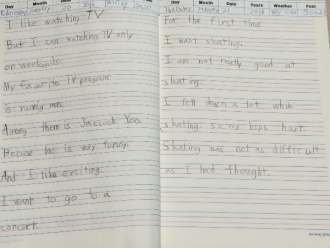 Day Month Date Years Weather Feel
I like watching TV
But I can watching TV only
on weekends.
My favorite TV program
is runnig man.
Among them is Jaesuck Yoo.
Becaus he is very funny
And I like exciting.
I want to go to a
concert.
Day Month Date Years Weather Feel
For the first time
I want skating.
I am not really good at
skating.
I fell down a lot while
skating. so my hips hurt.
Skating was not as difficult
as I had thought.